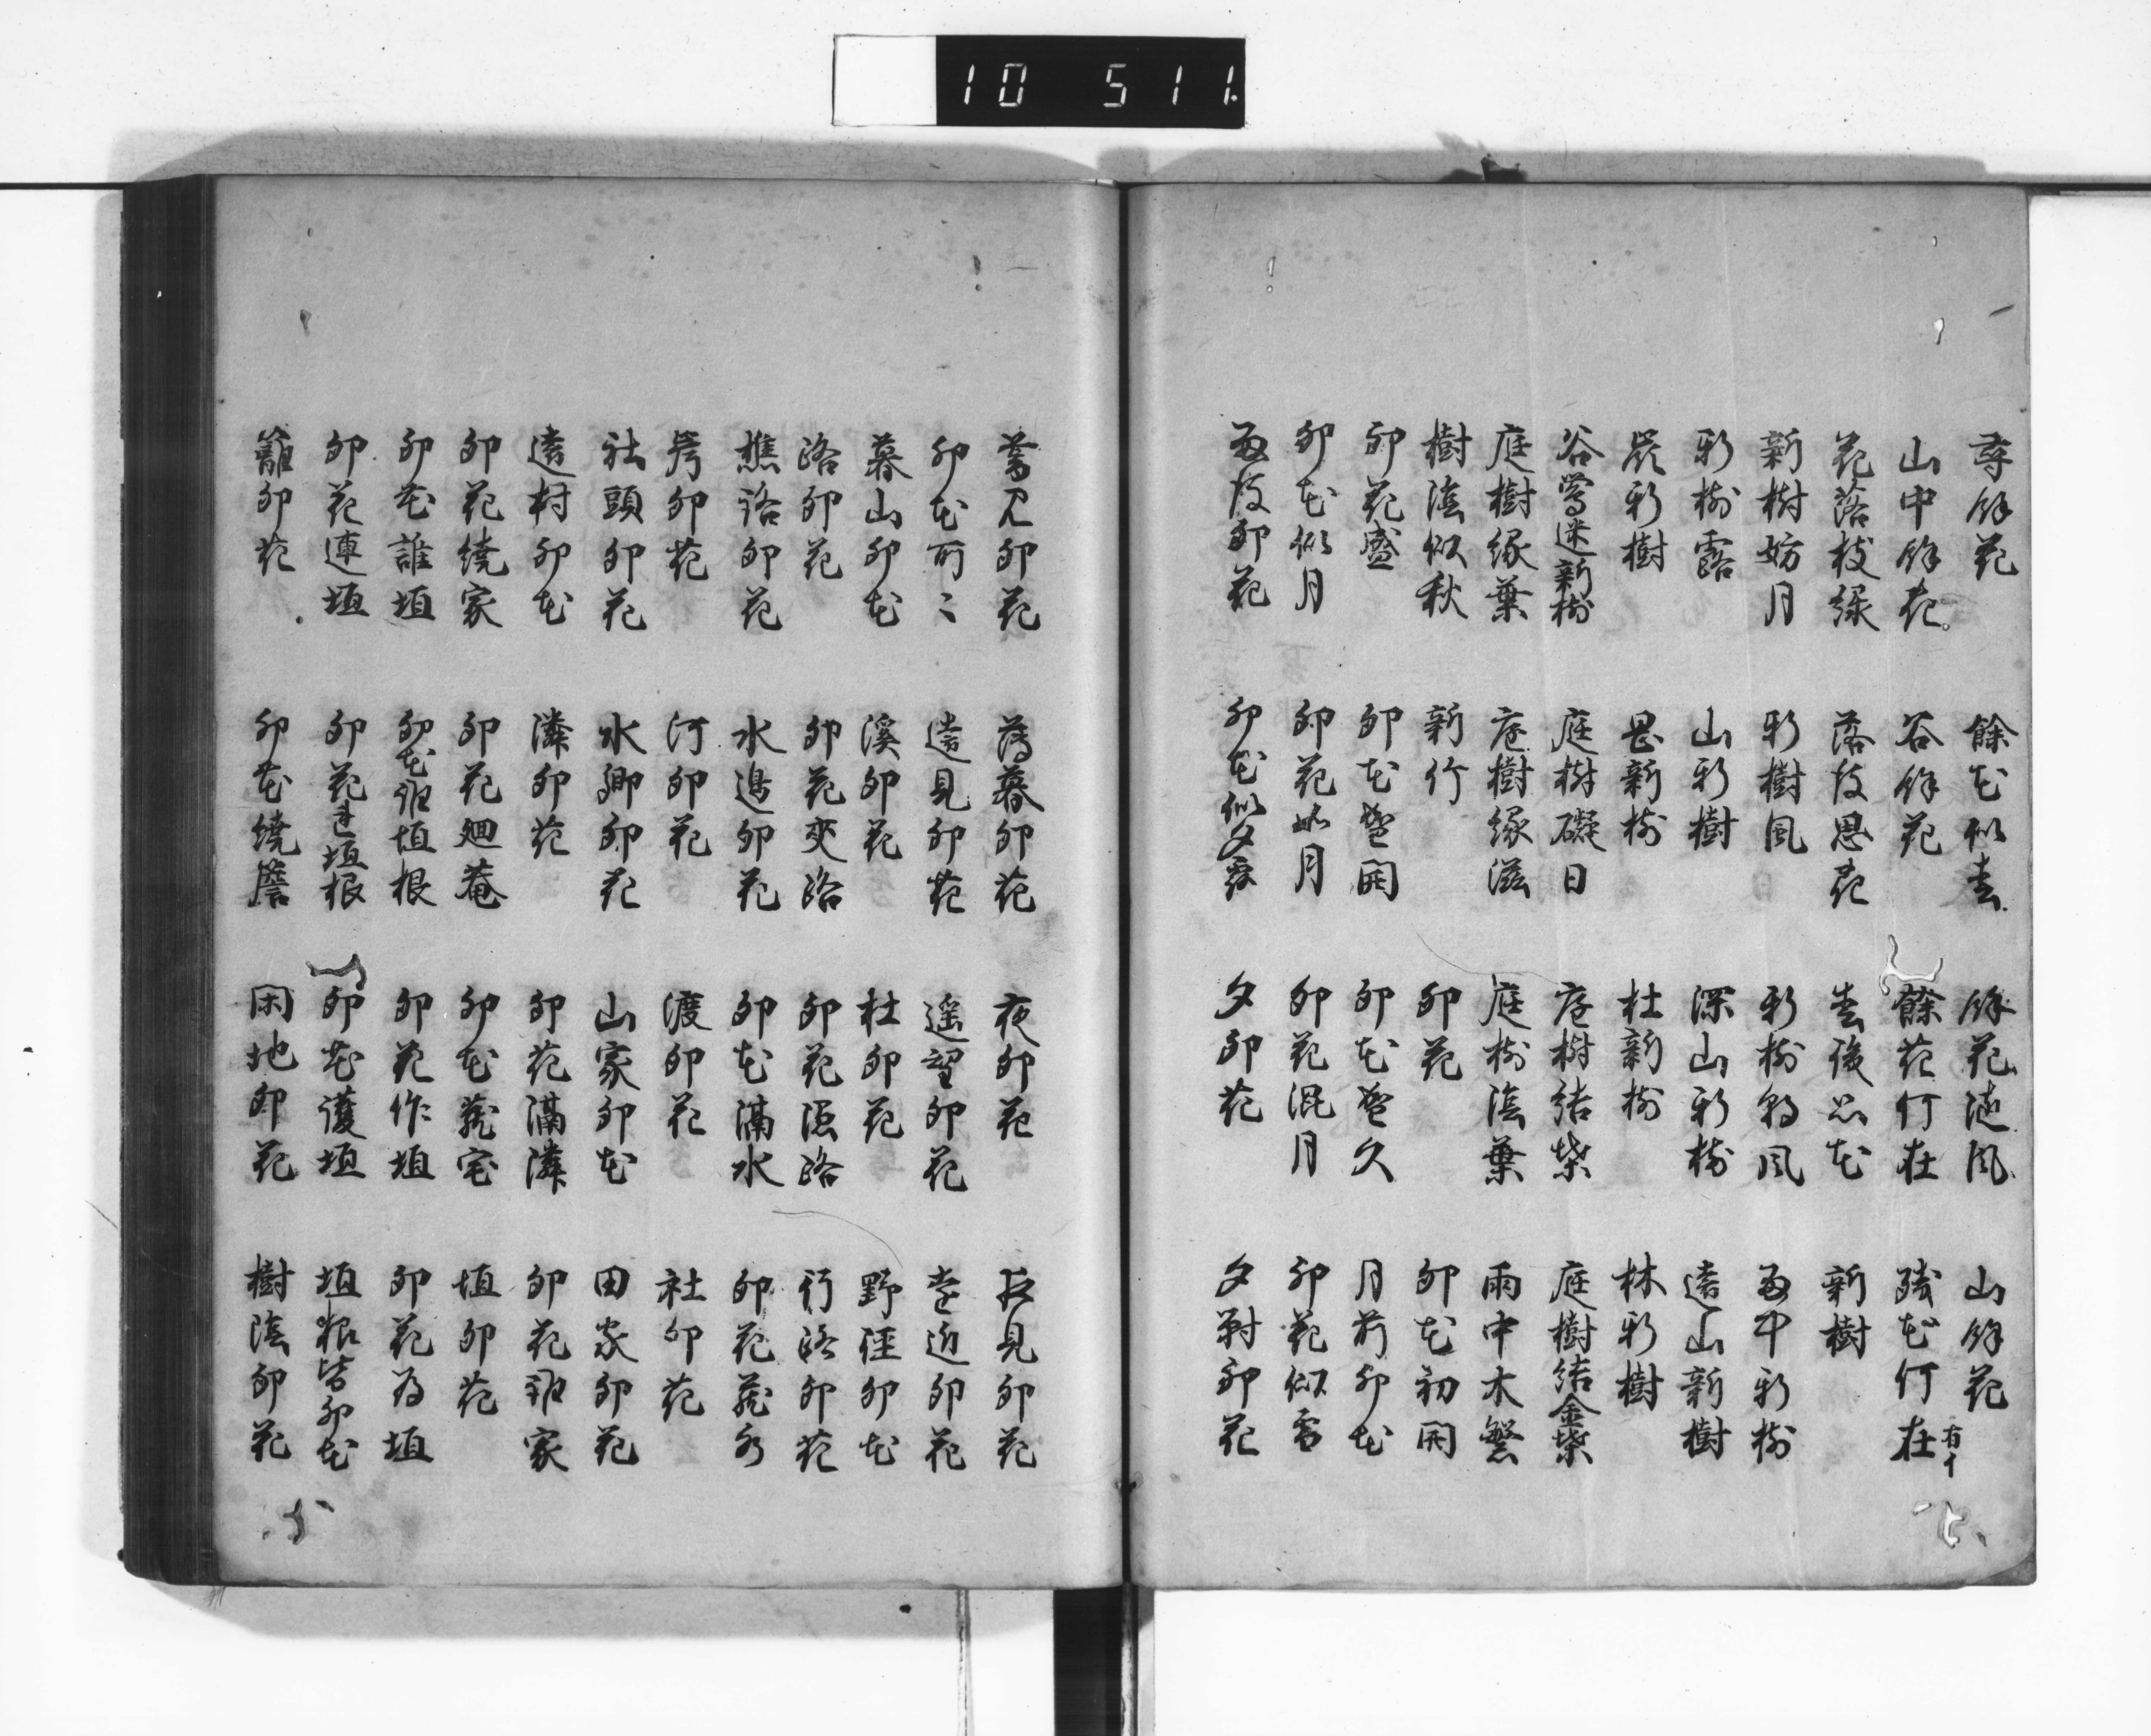 10 511
尋餘花 餘花似春 餘花随風 山餘花
山中餘花 谷餘花 餘花何在 残花何在 有十
花落枝緑 落後思花 春後思花 新樹
新樹妨月 新樹風 新樹朝風 雨中新樹
新樹露 山新樹 深山新樹 遠山新樹
嶺新樹 岡新樹 杜新樹 林新樹
谷鶯迷新樹 庭樹礙日 庭樹結葉 庭樹結金葉
庭樹緑葉 庭樹緑滋 庭樹陰葉 雨中木繁
樹陰似秋 新竹 卯花 卯花初開
卯花盛 卯花盛開 卯花盛久 月前卯花
卯花似月 卯花如月 卯花混月 卯花似雪
雨後卯花 卯花似夕 夕卯花 夕対卯花
暮見卯花 薄暮卯花 夜卯花 夜見卯花
卯花所々 遠見卯花 遥望卯花 遠近卯花
暮山卯花 溪卯花 杜卯花 野径卯花
路卯花 卯花夾路 卯花隠路 行路卯花
樵路卯花 水邊卯花 卯花満水 卯花蔵水
岸卯花 河卯花 渡卯花 社卯花
社頭卯花 水郷卯花 山家卯花 田家卯花
遠村卯花 隣卯花 卯花満隣 卯花誰家
卯花繞家 卯花廻菴 卯花蔵宅 垣卯花
卯花誰垣 卯花誰垣根 卯花作垣 卯花為垣
卯花連垣 卯花連垣根 卯花護垣 垣根皆卯花
籬卯花 卯花繞簷 閑地卯花 樹陰卯花